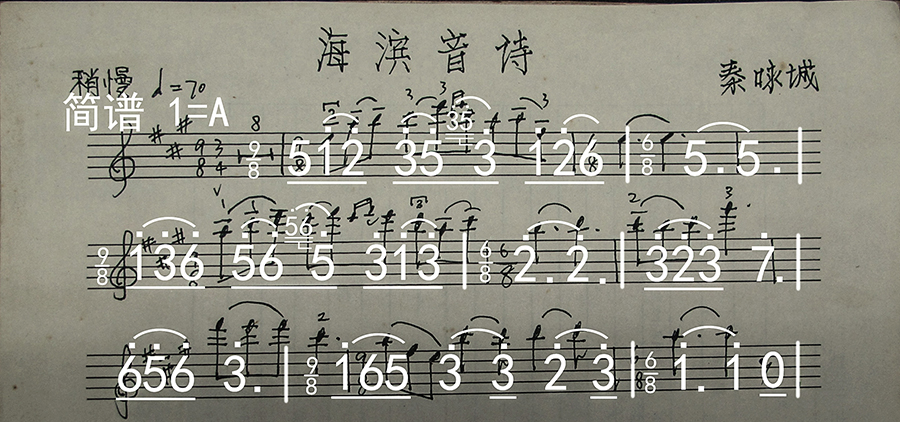 海滨音诗
稍慢 ♩=70 秦咏城
简谱 1=A
9/8 512 35 35 3 126 | 6/8 5. 5. |
9/8 136 56 56 5 313 | 6/8 2. 2. | 323 7. |
656 3. | 9/8 165 3 3 2 3 | 6/8 1. 1 0 |